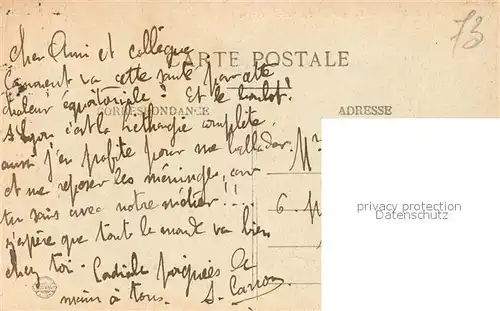 73
Cher Ami et collègue
CARTE POSTALE
Comment va cette santé par cette
chaleur équatoriale? Et le boulot!
CORRESPONDANCE
ADRESSE
A Lyon c'est la léthargie complète.
aussi j'en profite pour me ballader.
et me reposer les méninges, car
tu sais avec notre métier!!!
j'espère que tout le monde va bien
chez toi. Cordiale poignées de
main à tous.
Mr
6
privacy protection
Datenschutz